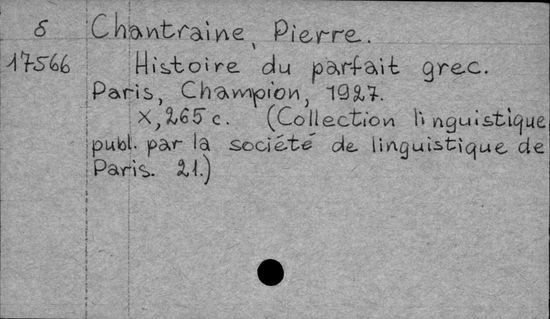 б Chantraine, Pierre.
17566 Histoire du parfait grec.
Paris, Champion, 1927.
X, 265 c. (Collection linguistique
publ. par la société de linguistique de
Paris. 21.)